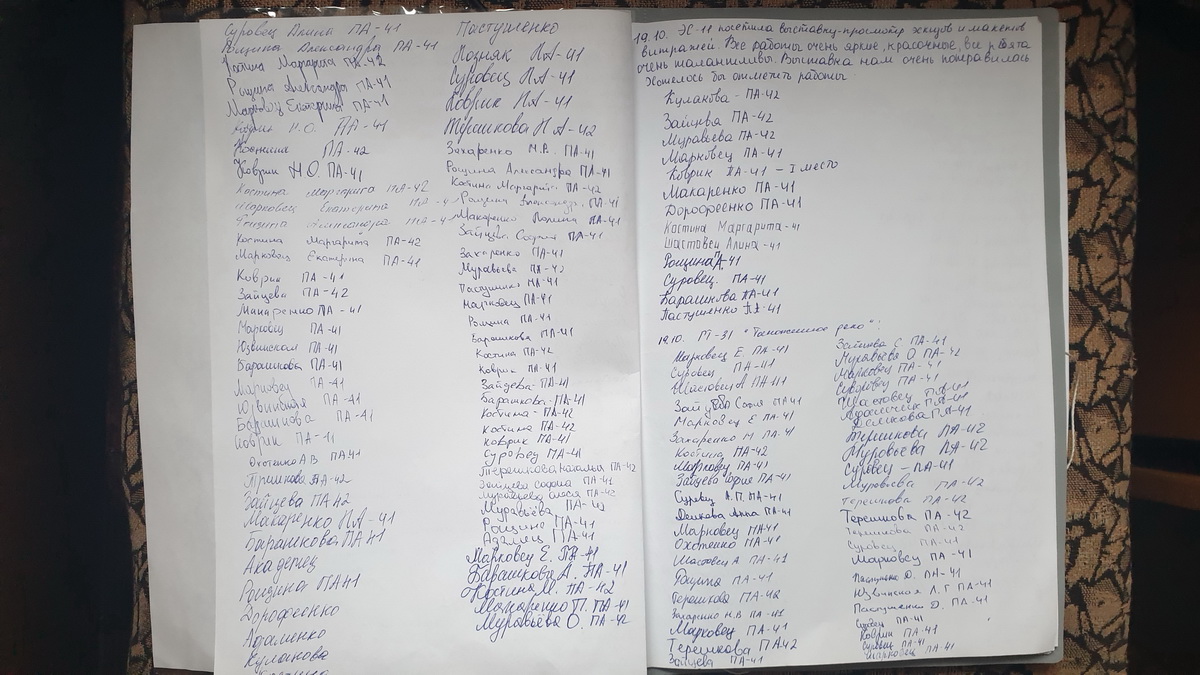 Суровец Алина ПА-41
Рощина Александра ПА-41
Костина Маргарита ПА-42
Рощина Александра ПА-41
Марковец Екатерина ПА-41
Коврик Н.О. ПА-41
Костина ПА-42
Коврик Н.О. ПА-41
Костина Маргарита ПА-42
Марковец Екатерина ПА-4
Рощина Александра ПА-4
Костина Маргарита ПА-42
Марковец Екатерина ПА-41
Коврик ПА-41
Зайцева ПА-42
Макаренко ПА-41
Марковец ПА-41
ПА-41
Барашкова ПА-41
Марковец ПА-41
ПА-41
Барашкова ПА-41
Коврик ПА-41
Охотенко А В ПА41
ПА-42
Зайцева ПА-42
Макаренко ПА-41
Барашкова ПА41
Академец
Рощина ПА41
Дорофеенко
Адаменко
Куланова
Пастушенко
Позняк ПА-41
Суровец ПА-41
Коврик ПА-41
Терешкова ПА-42
Захаренко М.Р. ПА-41
Рощина Александра ПА-41
Костина Маргарит ПА-42
Рощина ПА-41
Макаренко Полина ПА-41
Зайцева София ПА-41
Захаренко ПА-41
Муравьева ПА-42
Пастушенко ПА-41
Марковец ПА-41
Рощина ПА-41
Барашкова ПА-41
Костина ПА-42
Коврик ПА-41
Зайцева ПА-41
Барашкова ПА-41
Костина ПА-42
Костина ПА-42
Коврик ПА-41
Суровец ПА-41
Терешкова Наталья ПА-42
Зайцева София ПА-41
Муравьева Олеся ПА-42
Муравьева ПА-42
Рощина ПА-41
Адамец ПА-41
Марковец Е. ПА-41
Барашкова А. ПА-41
Костина М. ПА-42
Макаренко П. ПА-41
Муравьева О. ПА-42
19.10. ЭС-11 посетила выставку-просмотр эскизов и макетов
витражей. Все работы очень яркие, красочные, все ребята
очень талантливы. Выставка нам очень понравилась
Хотелось бы отметить работы
Куланова - ПА-42
Зайцева ПА-42
Муравьева ПА-42
Марковец ПА-41
Коврик ПА-41 - I место
Макаренко ПА-41
Дорофеенко ПА-41
Костина Маргарита-41
Шастовец Алина-41
Рощина А-41
Суровец. ПА-41
Барашкова ПА-41
Пастушенко ПА-41
19.10. РТ-31 "Таможенное дело":
Марковец Е. ПА-41
Суровец ПА-41
Шастовец А ПА-41
Зайцева София ПА41
Марковец Е ПА-41
Захаренко М ПА-41
Костина ПА-42
Марковец ПА-41
Зайцева София ПА-41
Суровец А.П. ПА-41
Демкова Анна ПА-41
Марковец ПА41
Охотенко ПА-41
Шастовец А ПА-41
Рощина ПА-41
Терешкова ПА-42
Захаренко Н.В ПА-41
Марковец ПА-41
Терешкова ПА-42
Зайцева ПА-41
Зайцева С ПА-41
Муравьева О ПА-42
Марковец ПА-41
Суровец ПА-41
Шастовец ПА-41
ПА-41
Демкова ПА-41
Терешкова ПА-42
Муровьева ПА-42
Суровец - ПА-41
Муровьева ПА-42
Терешкова ПА-42
Терешкова ПА-42
Терешкова ПА-42
Суровец ПА-41
Марковец ПА-41
Пастушенко Д. ПА-41
Л.Г ПА-41
Пастушенко Д. ПА-41
Суровец ПА-41
Коврик ПА-41
Суровец ПА-41
Марковец ПА-41